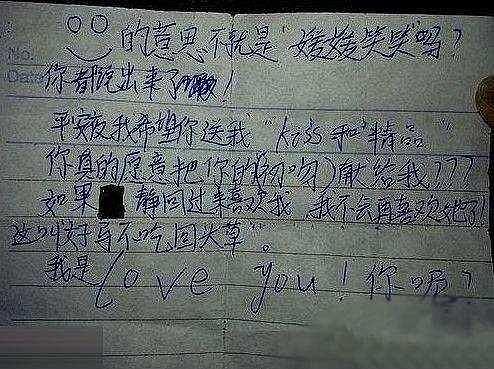 的意思不就是"媛媛笑笑"吗?
No.
Date
你都说出来了!
平安夜我希望你送我"kiss和"精品"
你真的愿意把你的初吻)献给我???
如果 静回过来喜欢我,我不会再喜欢她了!
这叫好马不吃回头草。
我是Love you!你呢?